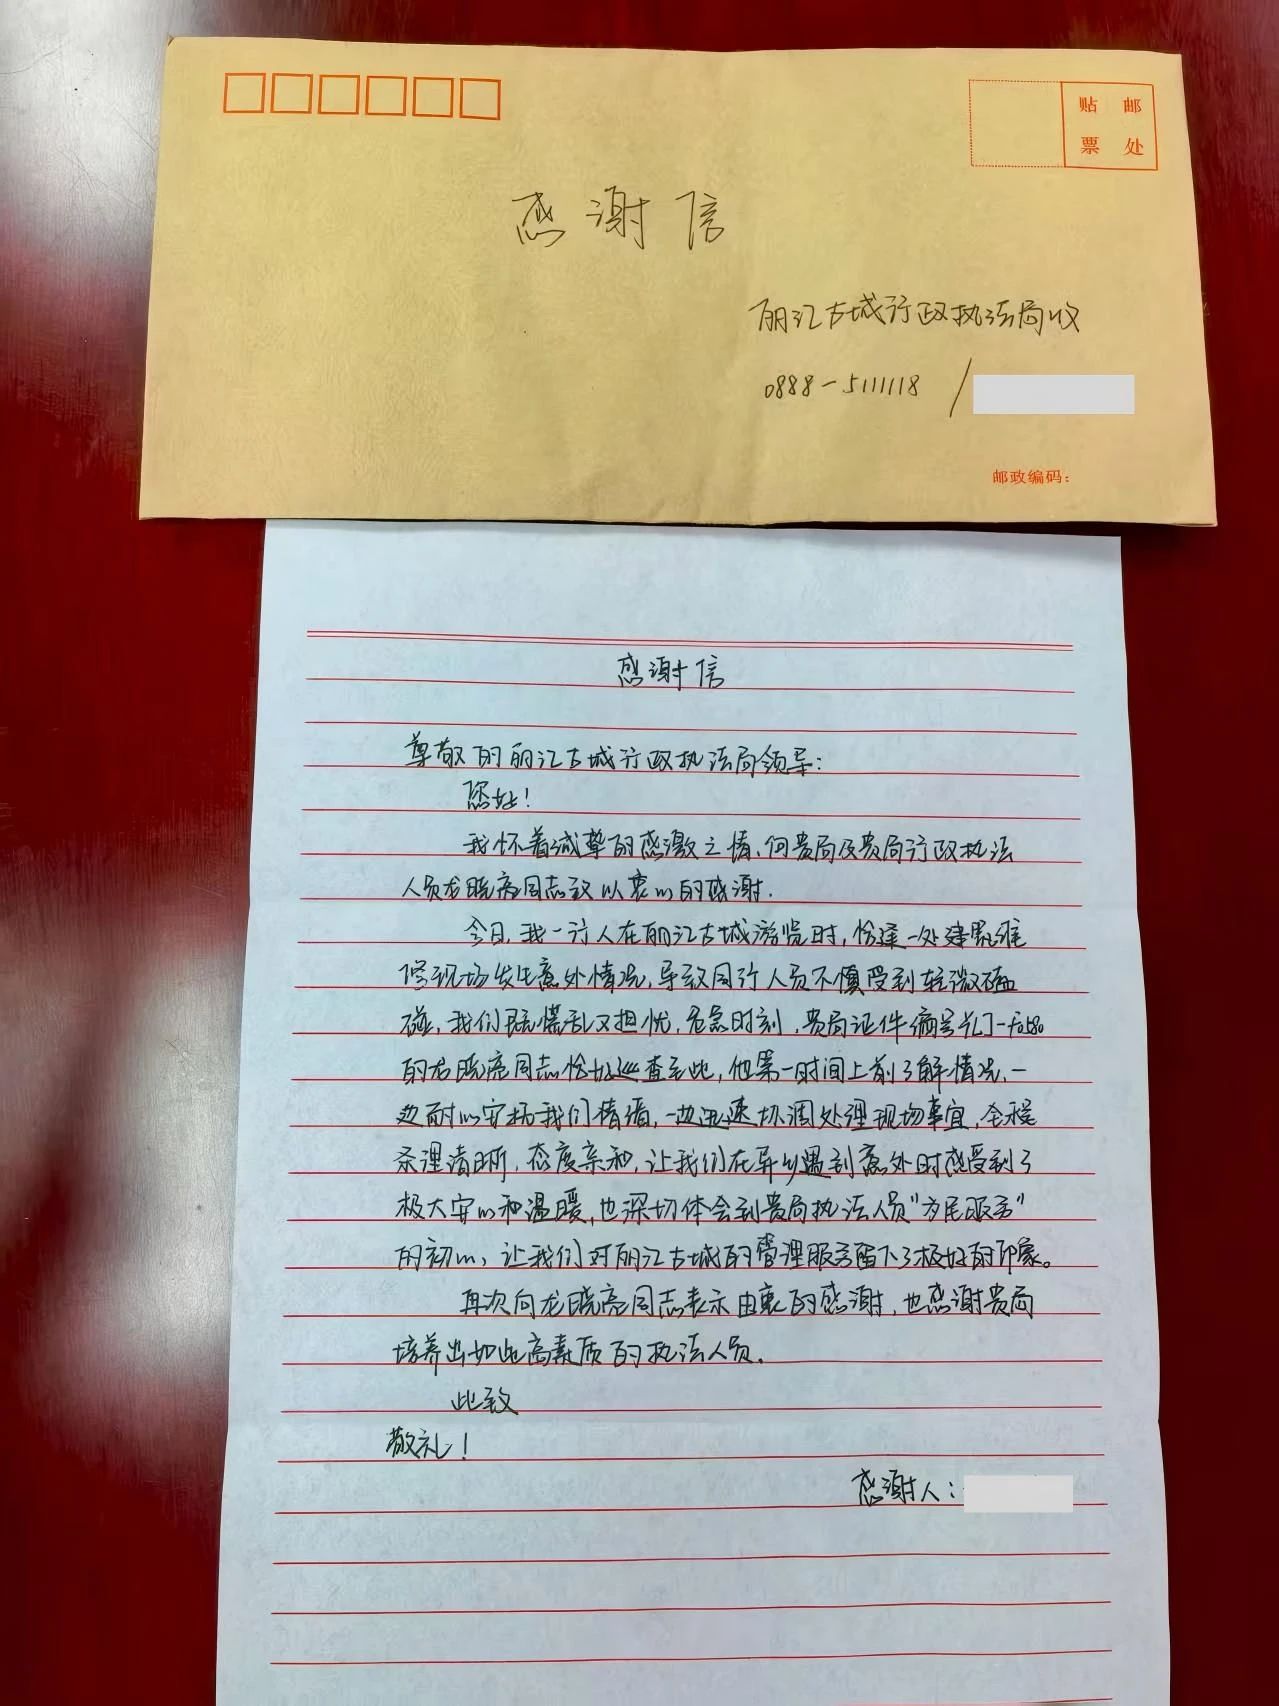 贴 邮
票 处
感谢信
丽江古城行政执法局收
0888-5111118 /
邮政编码：
感谢信
尊敬的丽江古城行政执法局领导：
您好！
我怀着诚挚的感激之情，向贵局及贵局行政执法
人员龙晓亮同志致以衷心的感谢．
今日，我一行人在丽江古城游览时，恰逢一处建筑维
修现场发生意外情况，导致同行人员不慎受到轻微磕
碰，我们既慌乱又担忧，危急时刻，贵局证件编号
的龙晓亮同志恰好巡查至此，他第一时间上前了解情况，一
边耐心安抚我们情绪，一边迅速协调处理现场事宜，全程
条理清晰，态度亲和，让我们在异乡遇到意外时感受到了
极大安心和温暖，也深切体会到贵局执法人员“为民服务”
的初心，让我们对丽江古城的管理服务留下了极好的印象。
再次向龙晓亮同志表示由衷的感谢，也感谢贵局
培养出如此高素质的执法人员．
此致
敬礼！
感谢人：